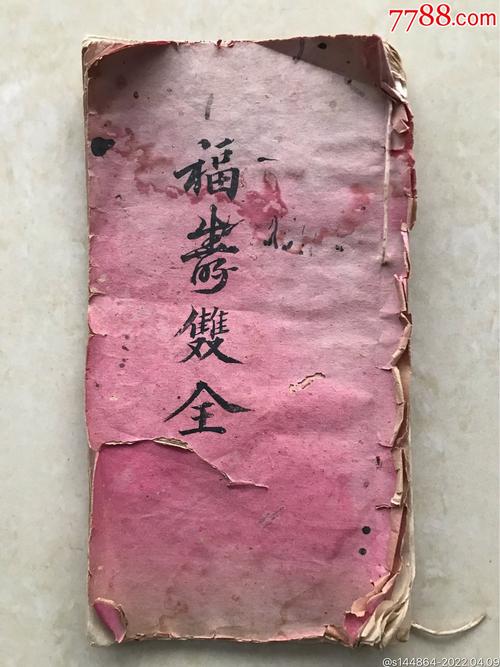 7788.com
福壽雙全
@s144864-2022.04.09